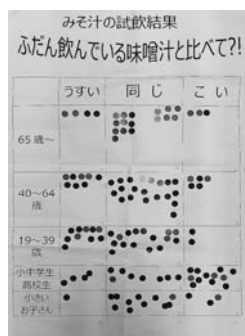 みそ汁の試飲結果
ふだん飲んでいる味噌汁と比べて?!
うすい 同じ こい
65歳～
40～64
歳
19～39
歳
小中学生
高校生
小さい
お子さん